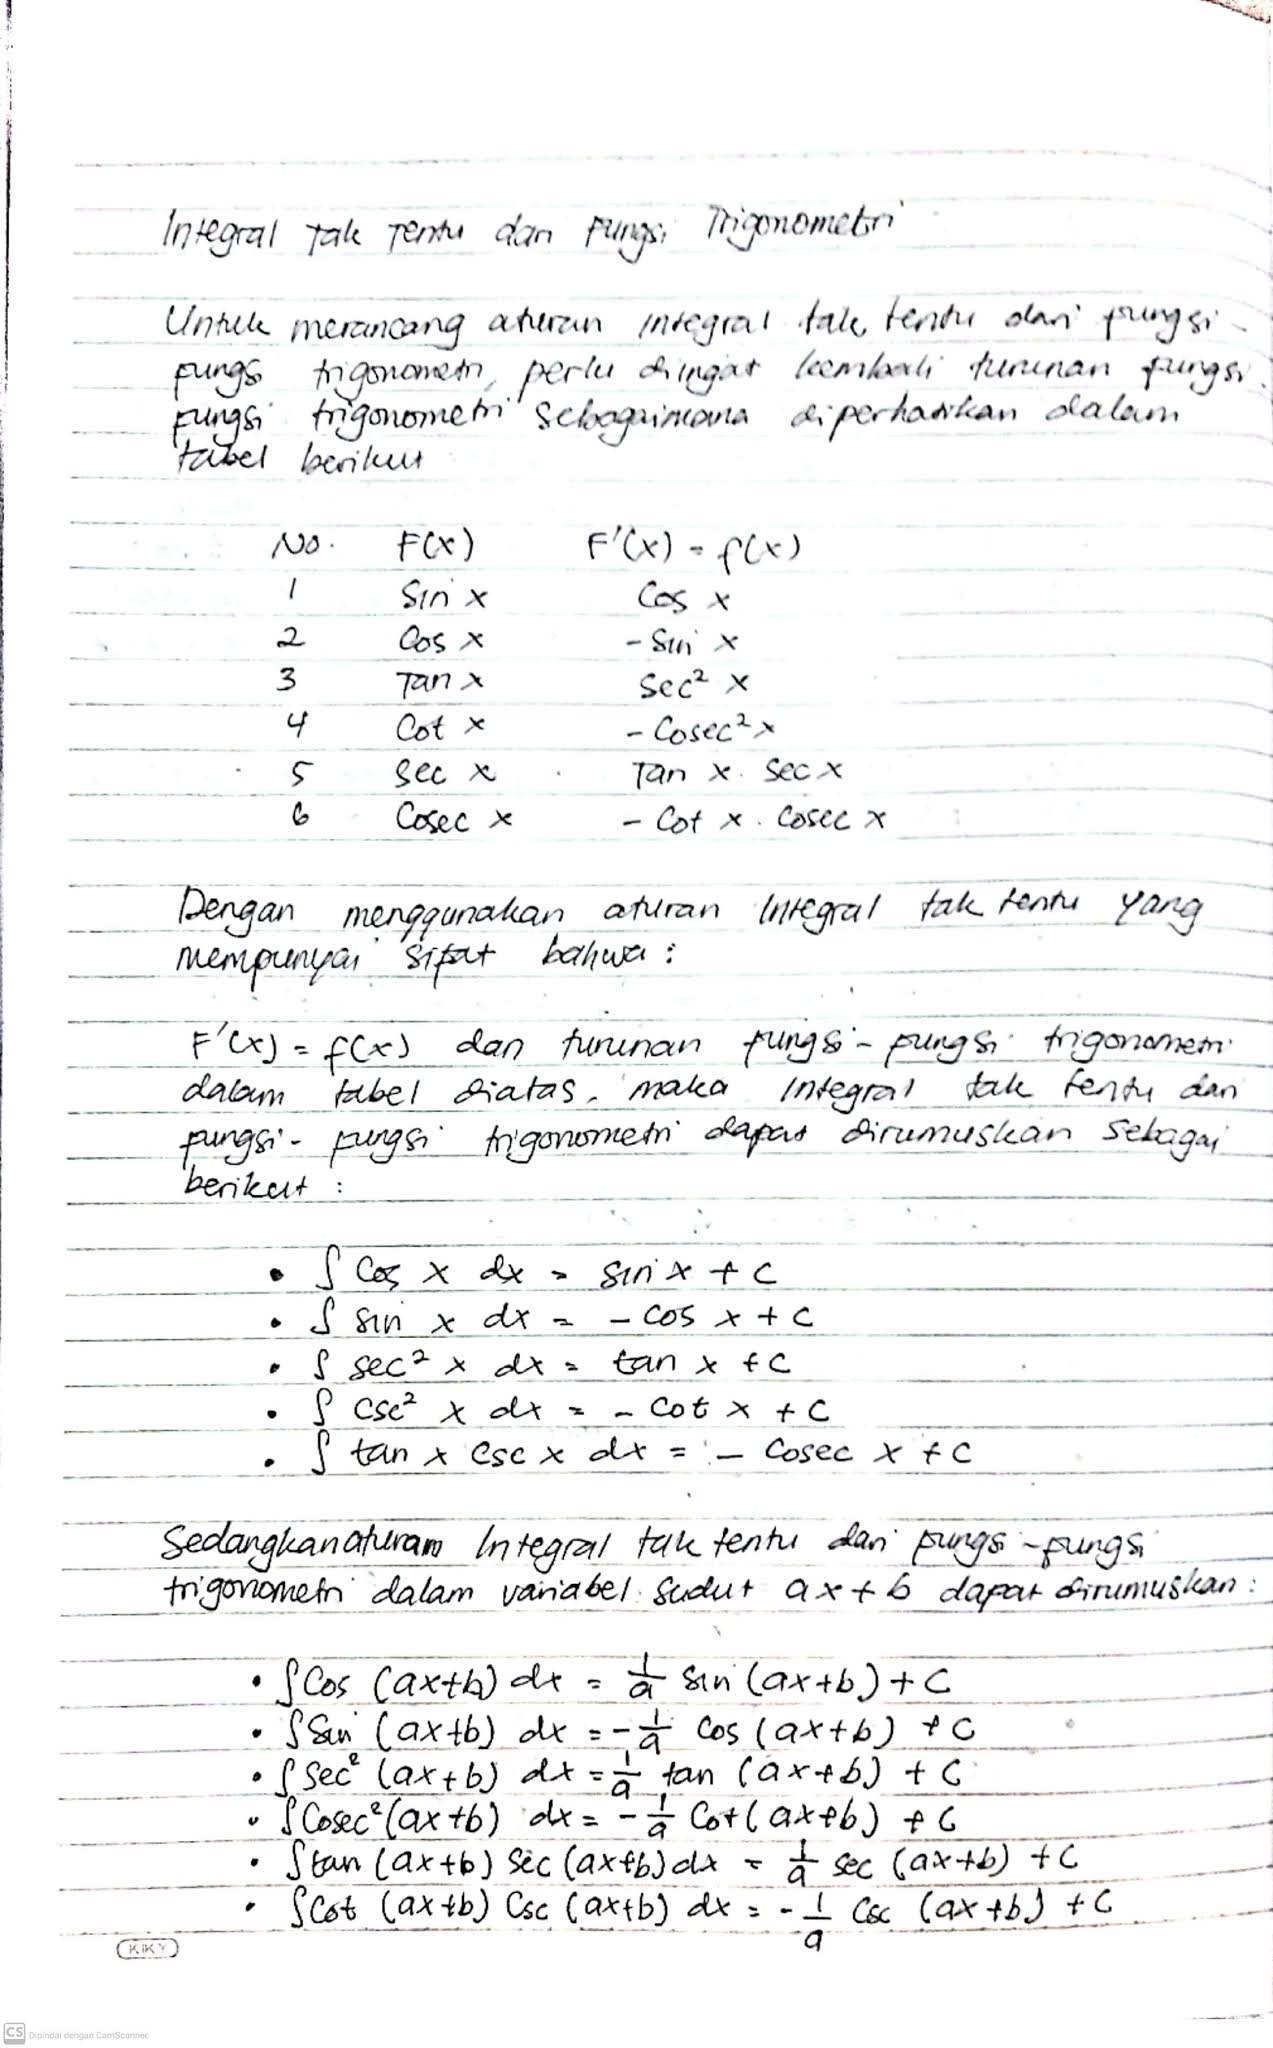 Integral Tak Tentu dari Fungsi Trigonometri
Untuk merancang aturan integral tak tentu dari fungsi
fungsi trigonometri, perlu diingat kembali turunan fungsi
fungsi trigonometri sebagaimana diperhatikan dalam
tabel berikut
No. F(x) F'(x) = f(x)
1 Sin x Cos x
2 Cos x - Sin x
3 Tan x Sec² x
4 Cot x - Cosec² x
5 Sec x Tan x . Sec x
6 Cosec x - Cot x . Cosec x
Dengan menggunakan aturan Integral tak tentu yang
mempunyai sifat bahwa :
F'(x) = f(x) dan turunan fungsi - fungsi trigonometri
dalam tabel diatas, maka Integral tak tentu dari
fungsi - fungsi trigonometri dapat dirumuskan sebagai
berikut :
• ∫ Cos x dx = sin x + C
• ∫ sin x dx = - cos x + C
• ∫ sec² x dx = tan x + C
• ∫ csc² x dx = - cot x + C
• ∫ tan x csc x dx = - Cosec x + C
Sedangkan aturan Integral tak tentu dari fungsi - fungsi
trigonometri dalam variabel sudut ax + b dapat dirumuskan :
• ∫ Cos (ax+b) dx = 1/a sin (ax+b) + C
• ∫ Sin (ax+b) dx = - 1/a cos (ax+b) + C
• ∫ Sec² (ax+b) dx = 1/a tan (ax+b) + C
• ∫ Cosec² (ax+b) dx = - 1/a Cot (ax+b) + C
• ∫ tan (ax+b) Sec (ax+b) dx = 1/a sec (ax+b) + C
• ∫ Cot (ax+b) Csc (ax+b) dx = - 1/a Csc (ax+b) + C
KIKY
CS Dipindai dengan CamScanner